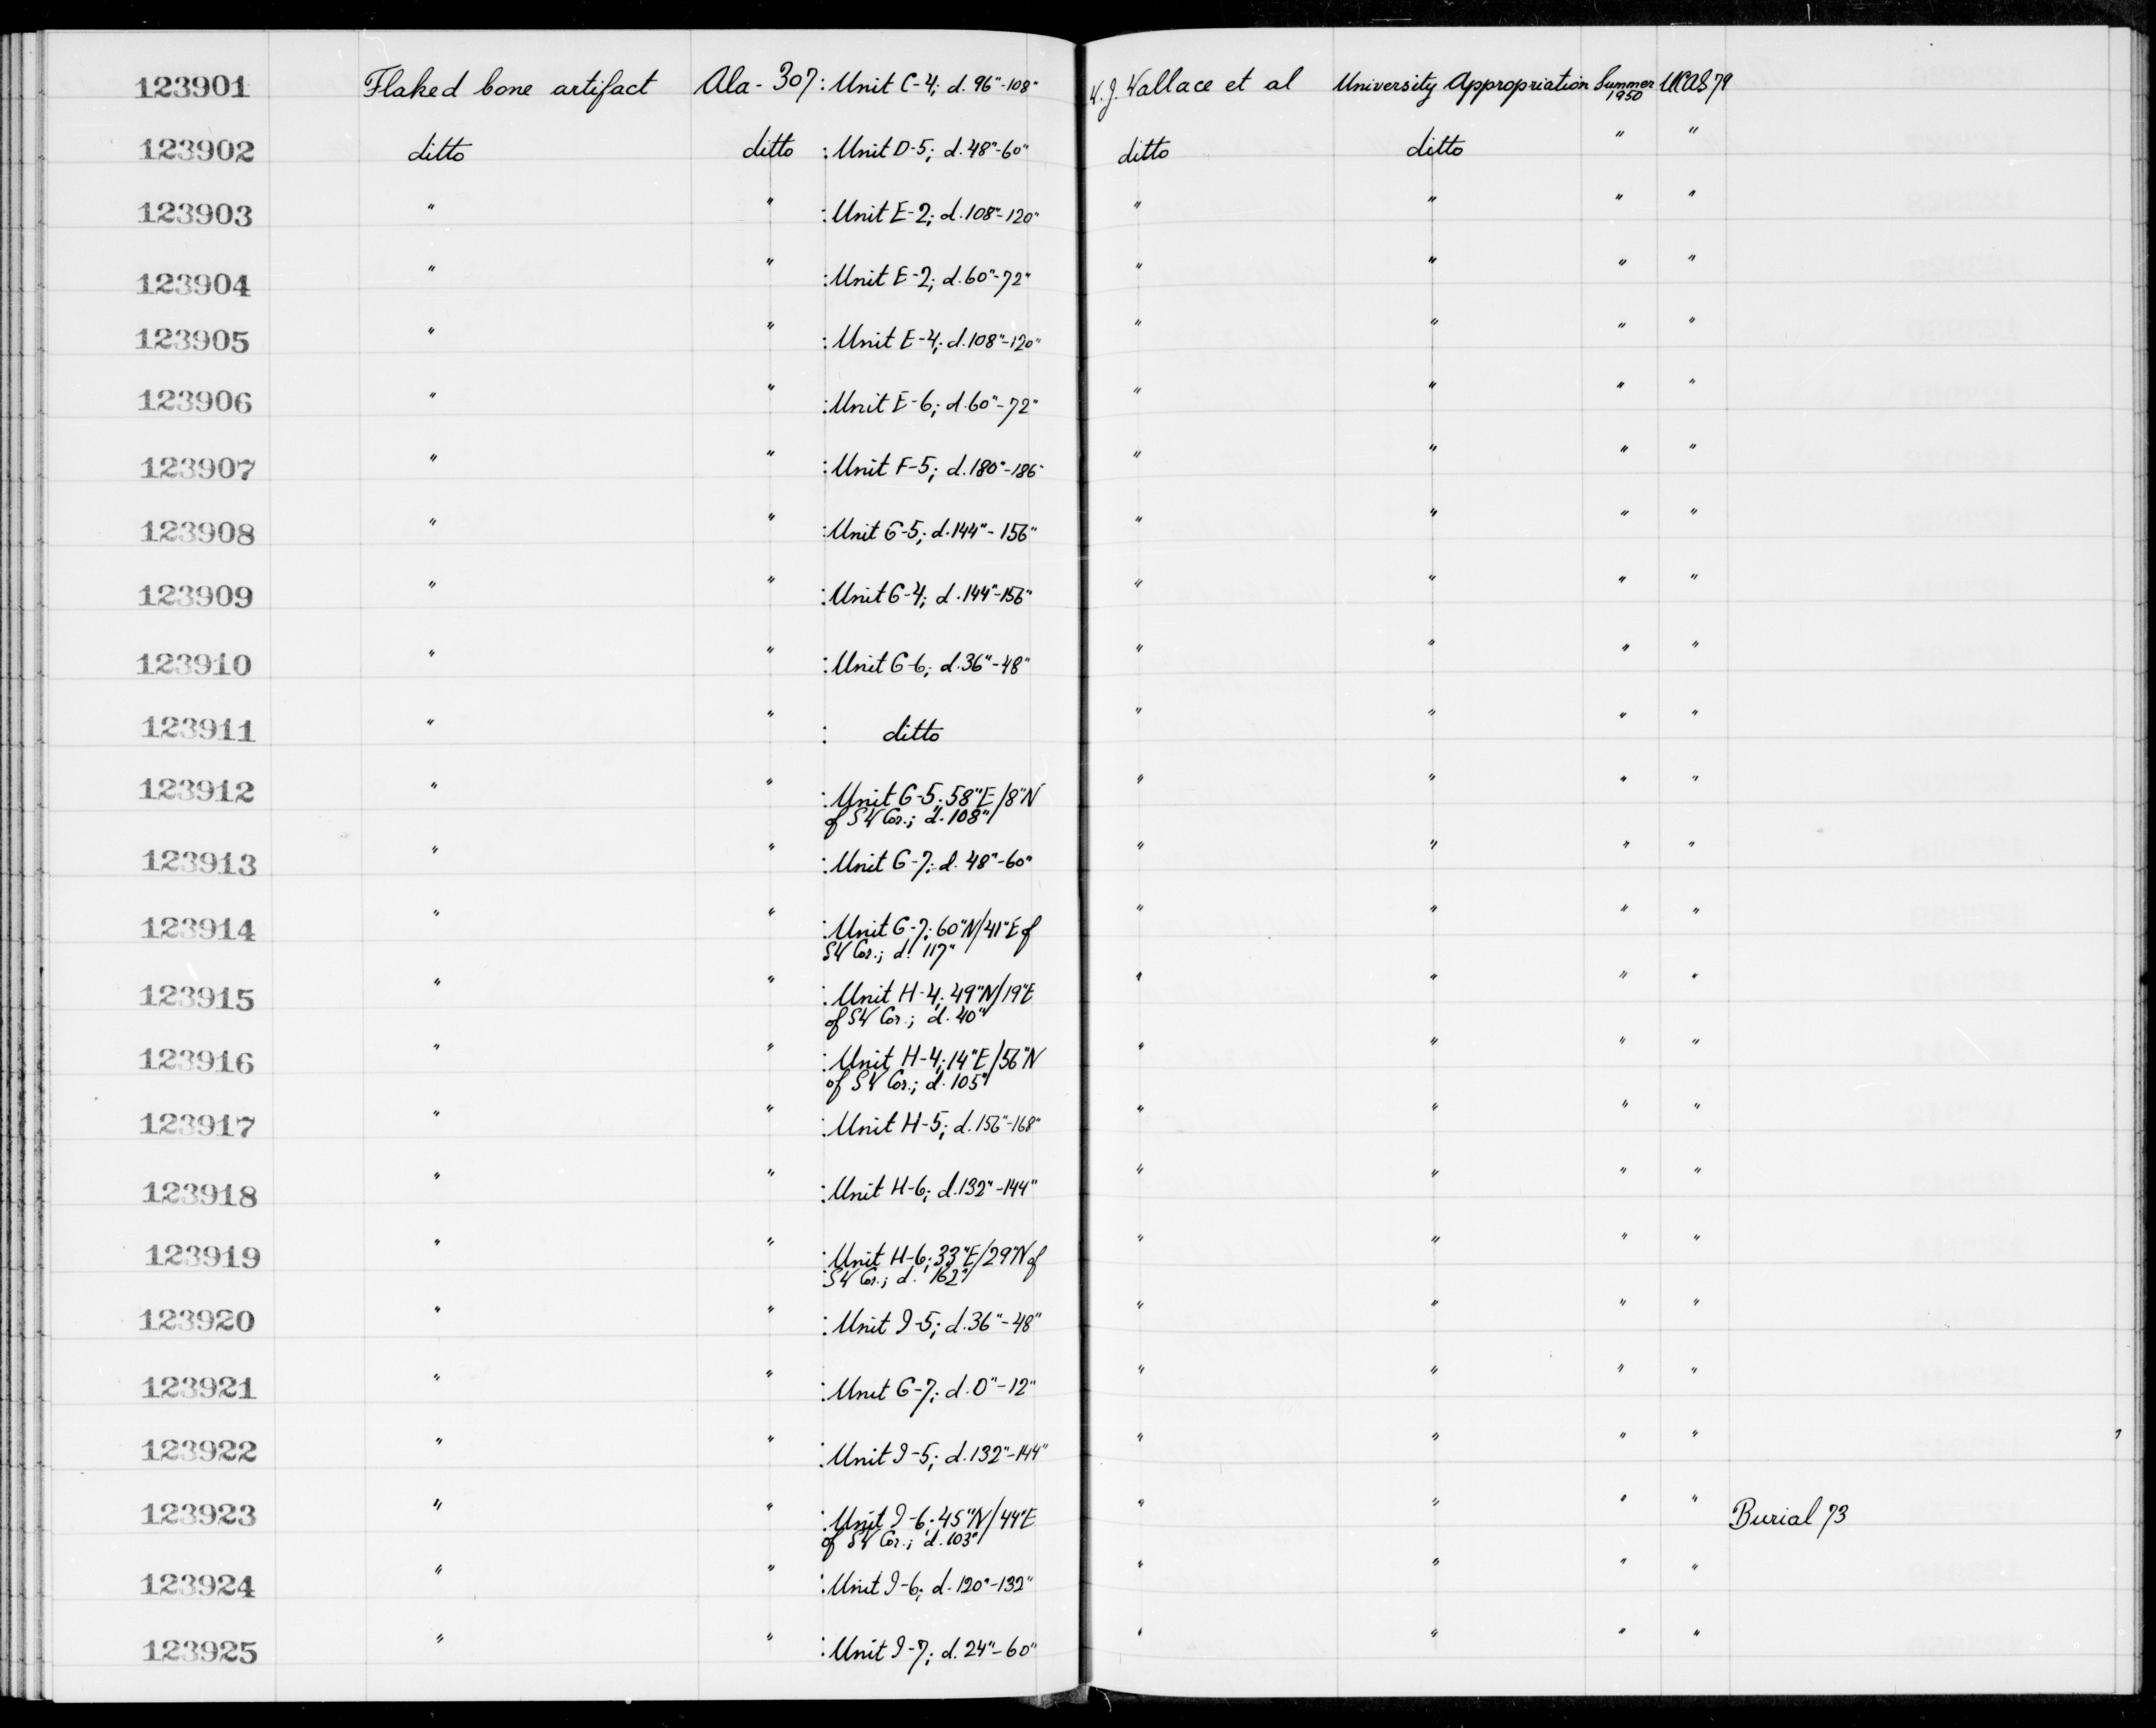 123901 Flaked bone artifact Ala-307 : Unit C-4; d. 96"-108" W.J. Wallace et al University Appropriation Summer 1950 UCAS 79
123902 ditto ditto : Unit D-5; d. 48"-60" ditto ditto " "
123903 " " : Unit E-2; d. 108"-120" " " " "
123904 " " : Unit E-2; d. 60"-72" " " " "
123905 " " : Unit E-4; d. 108"-120" " " " "
123906 " " : Unit E-6; d. 60"-72" " " " "
123907 " " : Unit F-5; d. 180"-186" " " " "
123908 " " : Unit G-5; d. 144"-156" " " " "
123909 " " : Unit G-4; d. 144"-156" " " " "
123910 " " : Unit G-6; d. 36"-48" " " " "
123911 " " : ditto " " " "
123912 " " : Unit G-5; 58"E/8"N " " " "
of SW Cor.; d. 108"
123913 " " : Unit G-7; d. 48"-60" " " " "
123914 " " : Unit G-7; 60"N/41"E of " " " "
SW Cor.; d. 117"
123915 " " : Unit H-4; 49"N/19"E " " " "
of SW Cor.; d. 40"
123916 " " : Unit H-4; 14"E/56"N " " " "
of SW Cor.; d. 105"
123917 " " : Unit H-5; d. 156"-168" " " " "
123918 " " : Unit H-6; d. 132"-144" " " " "
123919 " " : Unit H-6; 33"E/29"N of " " " "
SW Cor.; d. 162"
123920 " " : Unit I-5; d. 36"-48" " " " "
123921 " " : Unit G-7; d. 0"-12" " " " "
123922 " " : Unit I-5; d. 132"-144" " " " "
123923 " " : Unit I-6; 45"N/44"E " " " " Burial 73
of SW Cor.; d. 103"
123924 " " : Unit I-6; d. 120"-132" " " " "
123925 " " : Unit I-7; d. 24"-60" " " " "